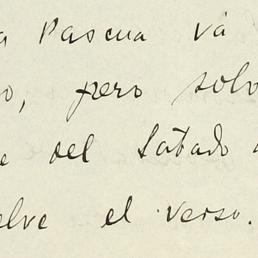 a Pascua vá
o, pero solo
e del Sabado
elve el verso.